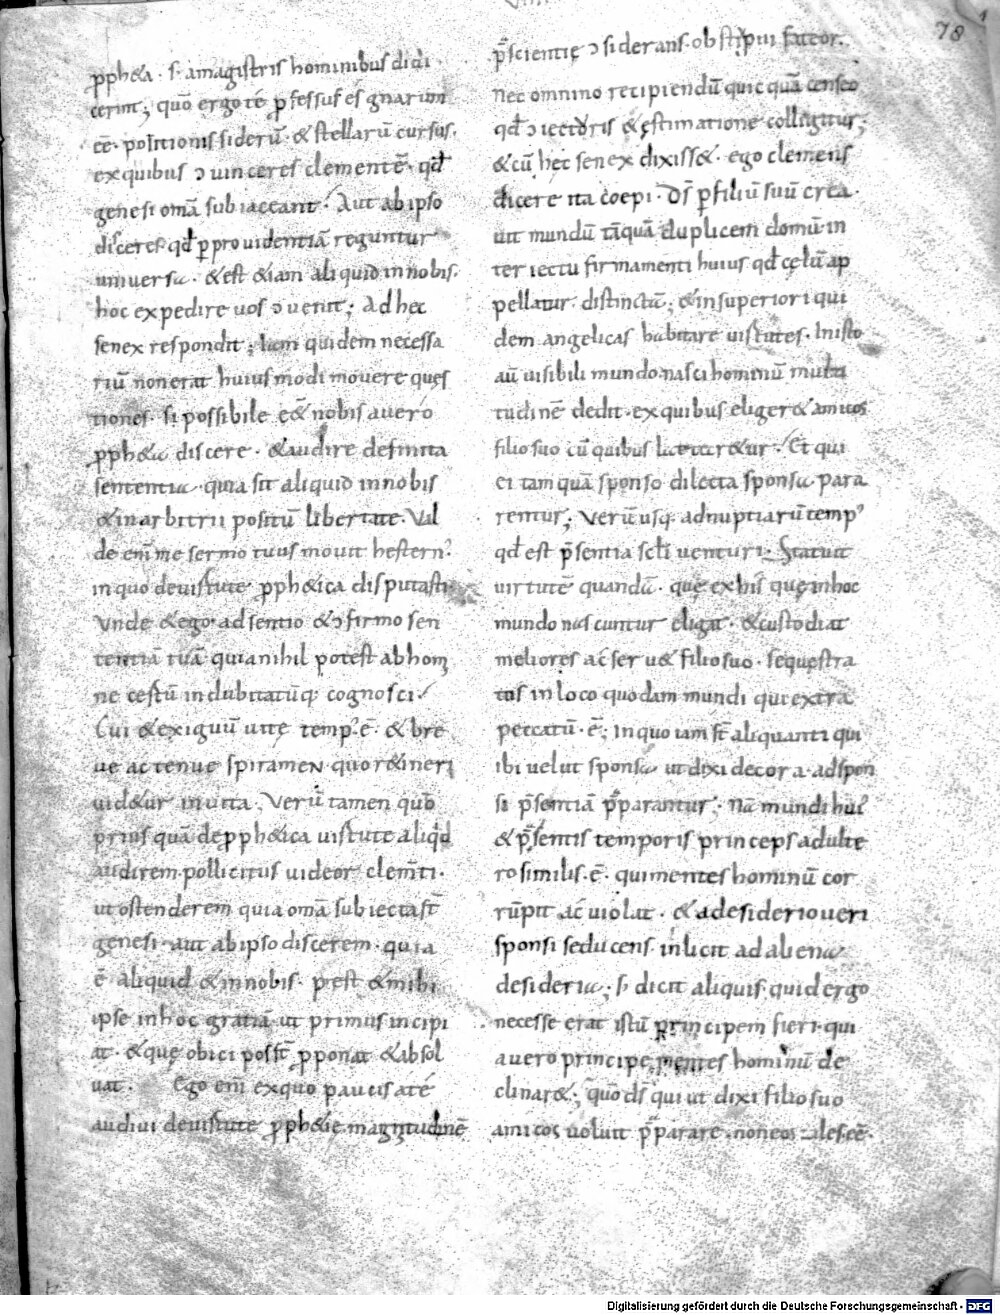 78
pph&a · s· amagistris hominibus didi
cerint; quō ergo té pfessus es gnarum
eē· positionis siderū· & stellarū cursus·
ex quibus ɔuinceres clementē· qđ
genesi omā subiaceant· Aut ab ipso
disceres qđ p prouidentiā reguntur
uniuersa· & est &iam aliquid in nobis·
hoc expedire uos ɔuenit; Ad hec
senex respondit; Iam quidem necessa
riū non erat huius modi mouere ques
tiones· si possibile eēt nobis a uero
pph&a discere· & audire definita
sententia· quia sit aliquid in nobis
& in arbitrii positū libertate· Val
de enī me sermo tuus mouit hestern᾽
in quo deuirtute pph&ica disputasti·
Vnde & ego adsentio & ɔfirmo sen
tentiā tuā quia nihil potest ab homi
ne certū indubitatūq; cognosci·
Cui & exiguū uitę temp᾽ ē· & bre
ue ac tenue spiramen quo r&ineri
uid&ur in uita· Verū tamen quō
prius quā de pph&ica uirtute aliqđ
audirem pollicitus uideor clem̄ti·
ut ostenderem quia omā subiecta sт̄
genesi· aut ab ipso discerem· quia
ē aliquid & in nobis· prest& mihi
ipse in hoc gratiā ut primus incipi
at· & quę obici poss̄t pponat & absol
uat· Ego enī ex quo paucis a té
audiui deuirtute pph&ię magnitudinē
p̄scientię ɔsiderans· obstipui fateor·
nec omnino recipiendū quicquā censeo
qđ ɔiecturis & ęstimatione colligitur;
& cū hęc senex dixiss&· ego clemens
dicere ita coepi· Dī p filiū suū crea
uit mundū tāquā duplicem domū in
teriectu firmamenti huius qđ cęlū ap
pellatur distinctā; & in superiori qui
dem angelicas habitare uirtutes· In isto
aū uisibili mundo nasci hominū multi
tudinē dedit· ex quibus eliger& amicos
filio suo cū quibus l&ar&ur· Et qui
ei tamquā sponso dilecta sponsa para
rentur; Verū usq; ad nuptiarū temp᾽
qđ est p̄sentia scłi uenturi· Statuit
uirtutē quandā· quę ex his quę in hoc
mundo nascuntur eligat· & custodiat
meliores ac seru& filio suo· sequestra
tas in loco quodam mundi qui extra
peccatū· ē; in quo iam sт̄ aliquanti qui
ibi uelut sponsa ut dixi decora· ad spon
si p̄sentiā p̄parantur; Nā mundi hui᾽
& p̄sentis temporis princeps adulte
ro similis· ē· qui mentes hominū cor
rūpit ac uiolat· & a desiderio ueri
sponsi seducens inlicit ad aliena
desideria; s; dicit aliquis quid ergo
necesse erat istū principem fieri qui
a uero principe mentes hominū de
clinar&; quō dс̄ qui ut dixi filio suo
amicos uoluit p̄parare· non eos tales eē·
Digitalisierung gefördert durch die Deutsche Forschungsgemeinschaft - DFG